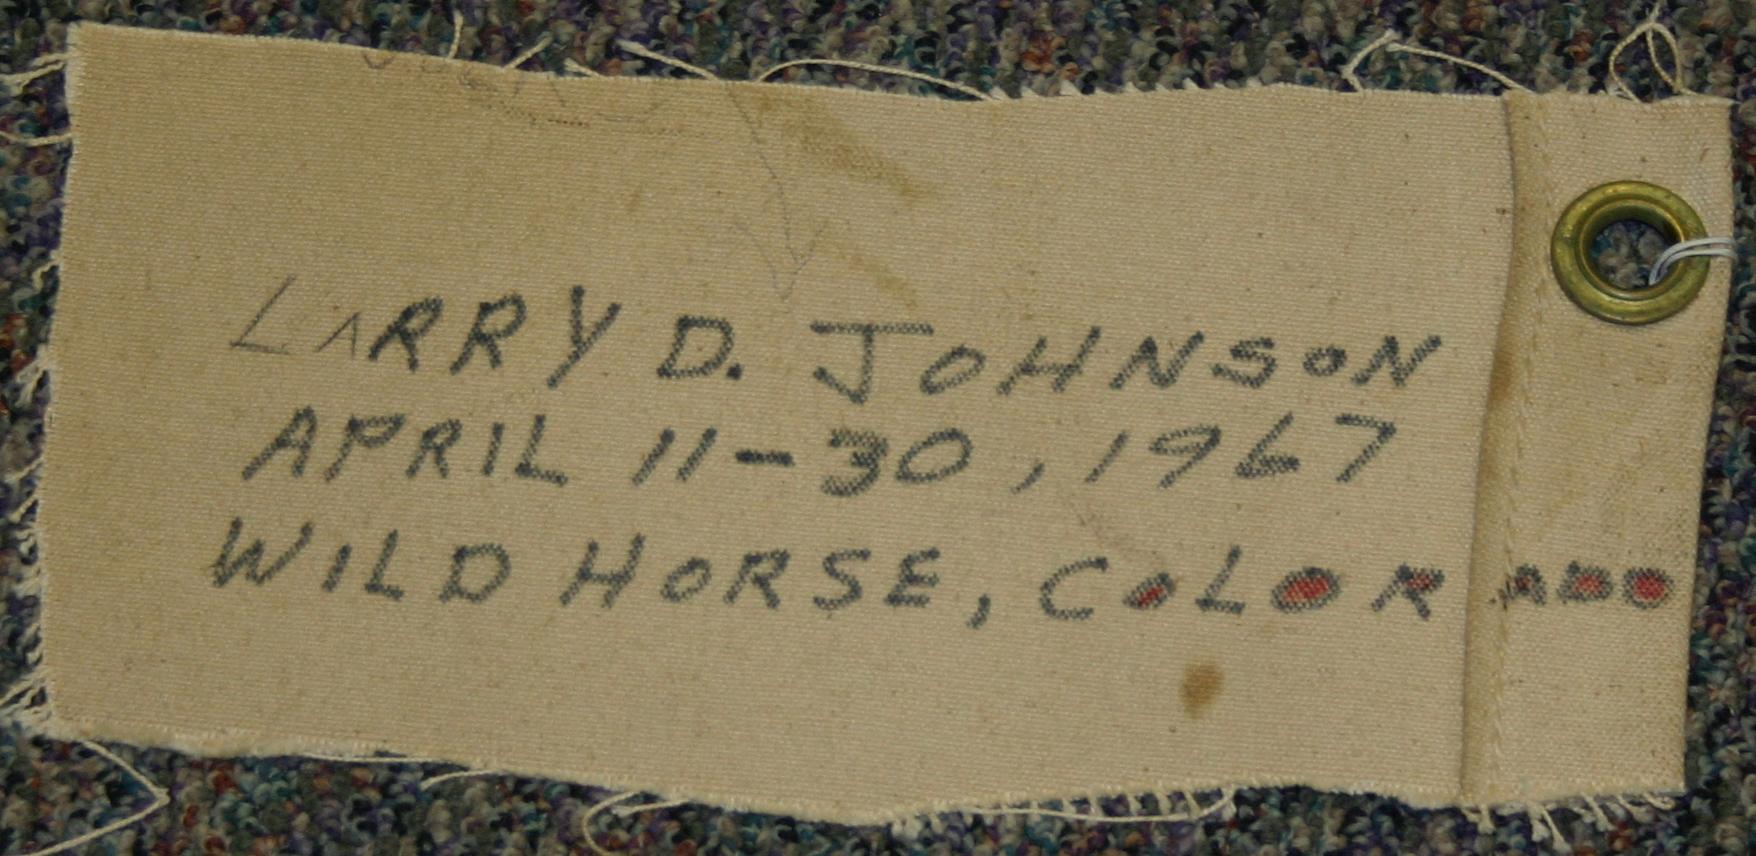 LARRY D. JOHNSON
APRIL 11-30, 1967
WILD HORSE, COLORADO